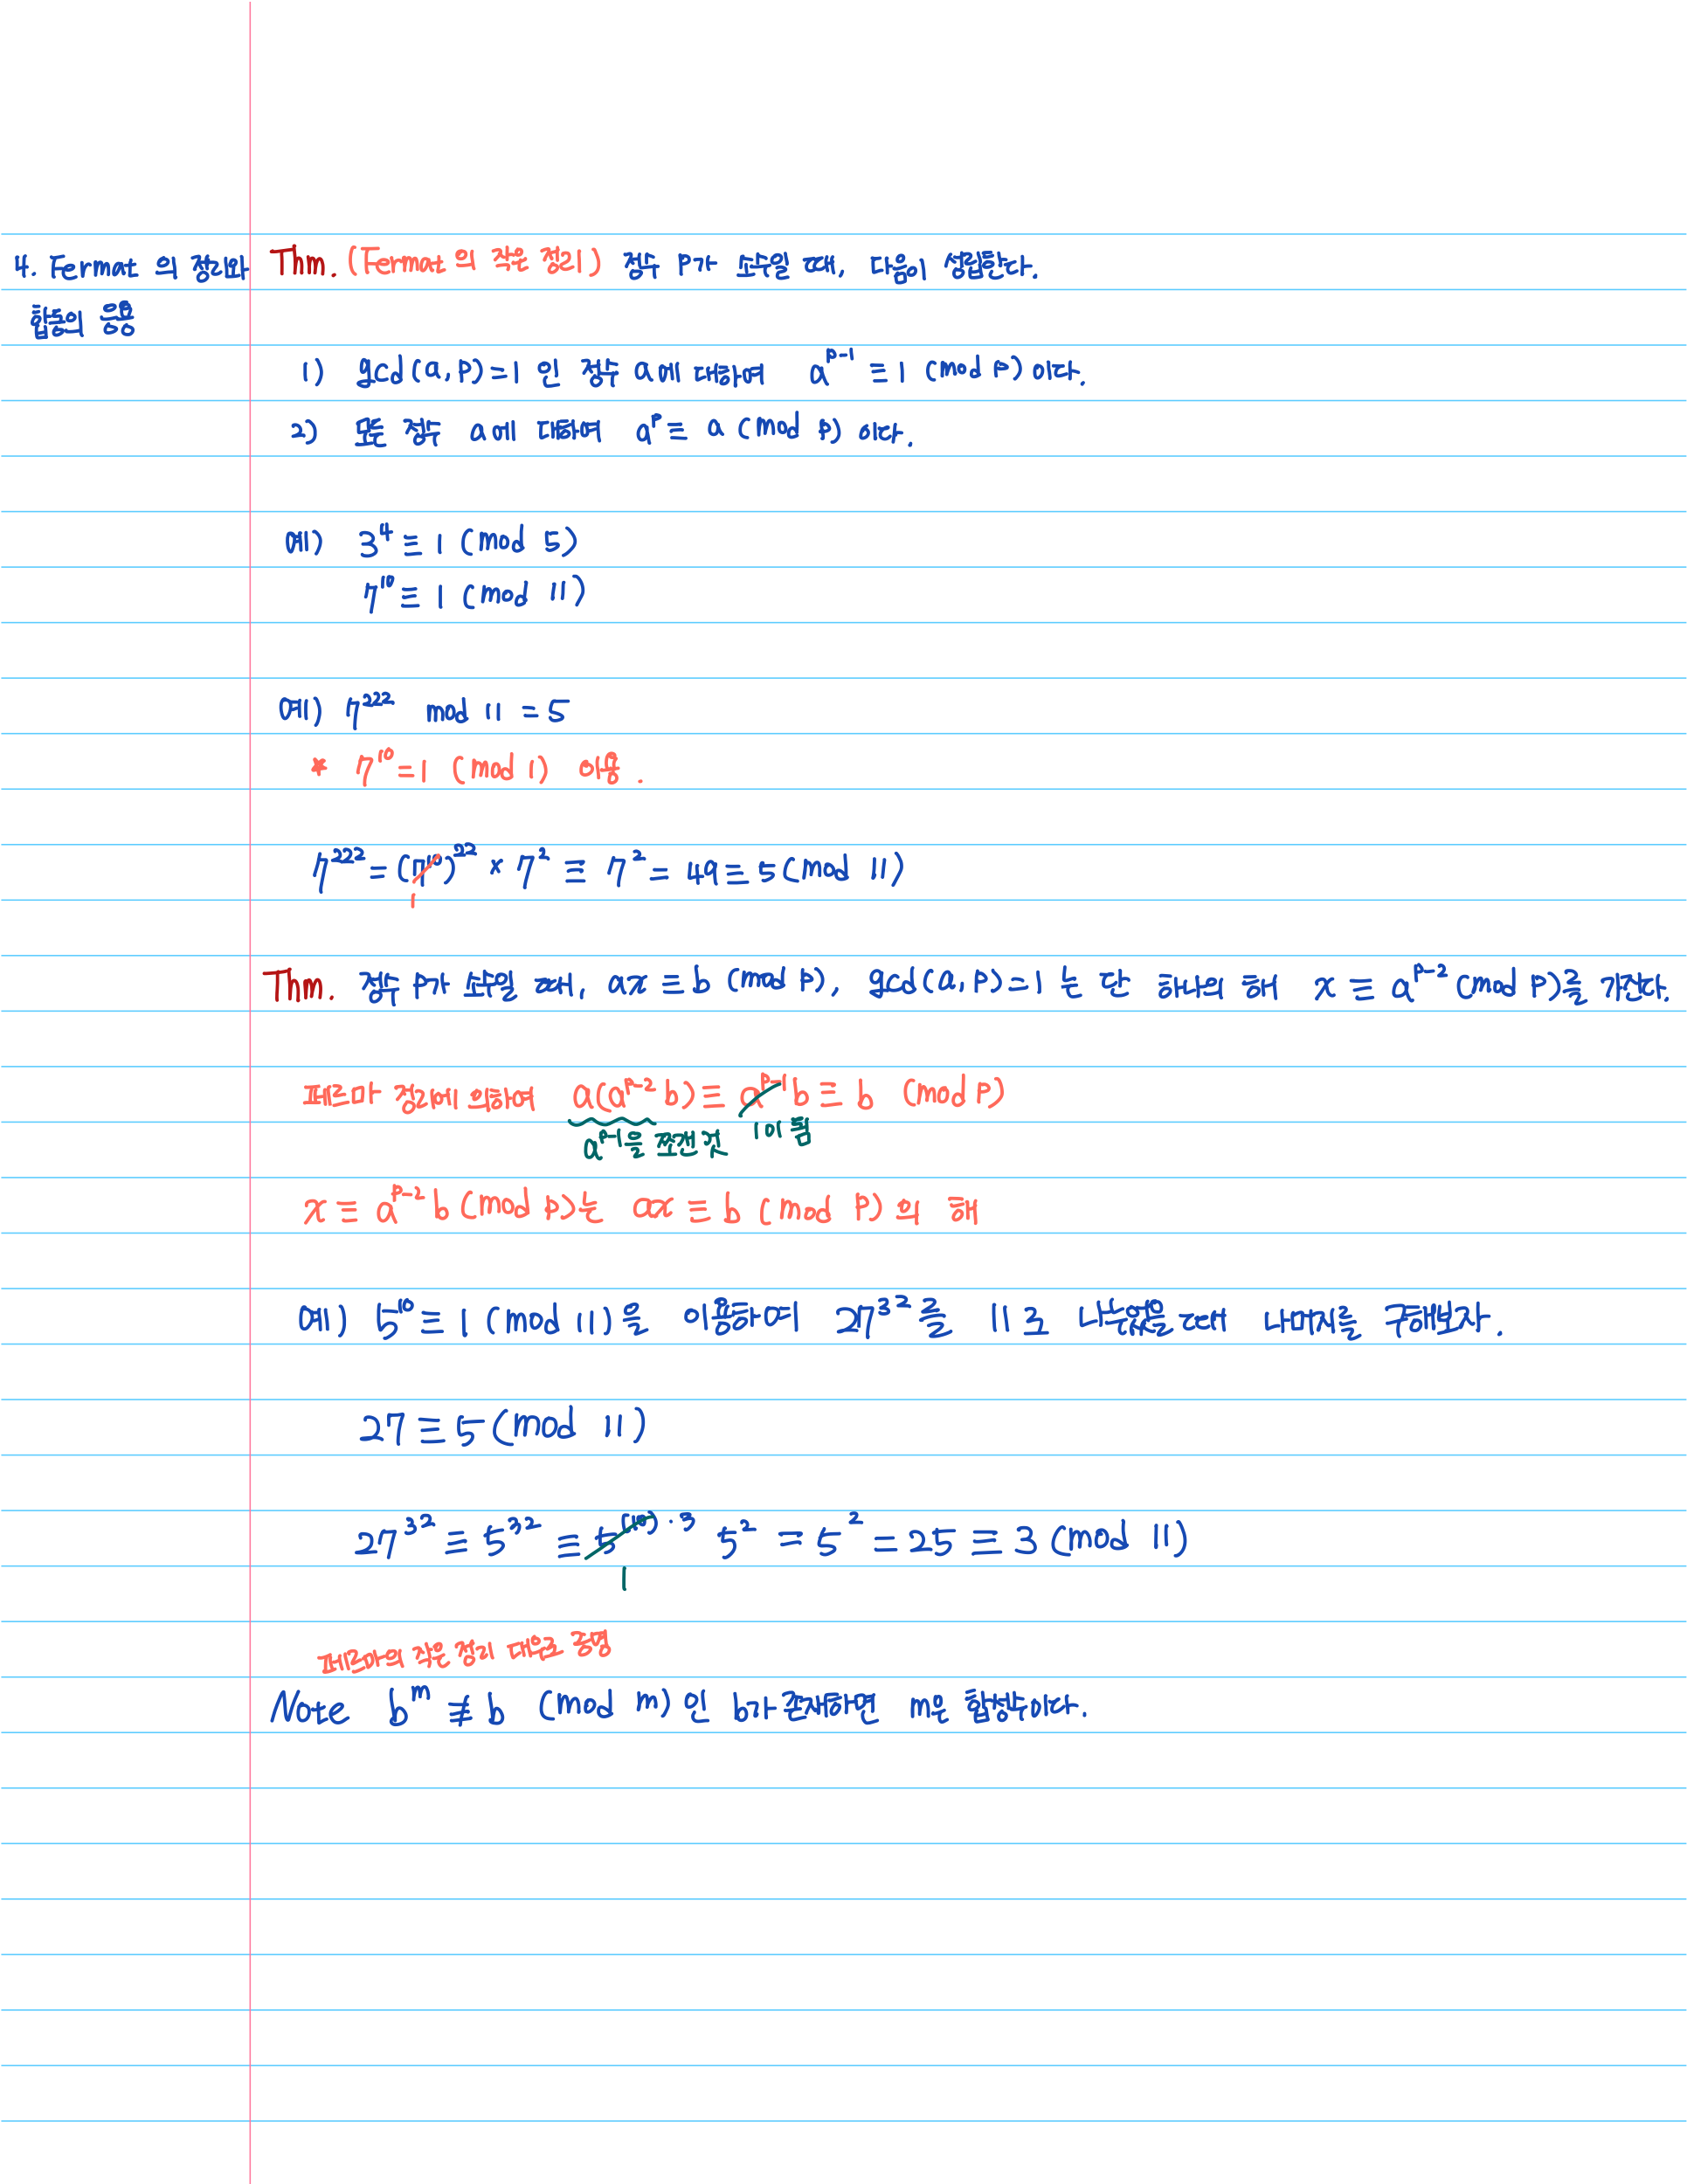 4. Fermat 의 정리와
합동의 응용
Thm. (Fermat 의 작은 정리) 정수 P가 소수일 때, 다음이 성립한다.
1) gcd(a, p)=1 인 정수 a에 대하여 a^{p-1} ≡ 1 (mod p) 이다.
2) 모든 정수 a에 대하여 a^p ≡ a (mod p) 이다.
예) 3^4 ≡ 1 (mod 5)
7^{10} ≡ 1 (mod 11)
예) 7^{222} mod 11 = 5
* 7^{10} = 1 (mod 1) 이용.
7^{222} = (7^{10})^{22} × 7^2 ≡ 7^2 = 49 ≡ 5 (mod 11)
1
Thm. 정수 P가 소수일 때, ax ≡ b (mod p), gcd(a, p)=1 는 단 하나의 해 x ≡ a^{p-2} (mod p)를 가진다.
페르마 정리에 의하여 a(a^{p-2} b) ≡ a^{p-1} b ≡ b (mod p)
a^{p-1}을 쪼갠 것 1이 됨
x ≡ a^{p-2} b (mod p)는 ax ≡ b (mod p) 의 해
예) 5^{10} ≡ 1 (mod 11)을 이용하여 27^{32}를 11로 나누었을 때 나머지를 구해보자.
27 ≡ 5 (mod 11)
27^{32} ≡ 5^{32} ≡ 5^{(10)·3} 5^2 = 5^2 = 25 ≡ 3 (mod 11)
1
페르마의 작은 정리 대우로 증명
Note b^m ≢ b (mod m) 인 b가 존재하면 m은 합성수이다.